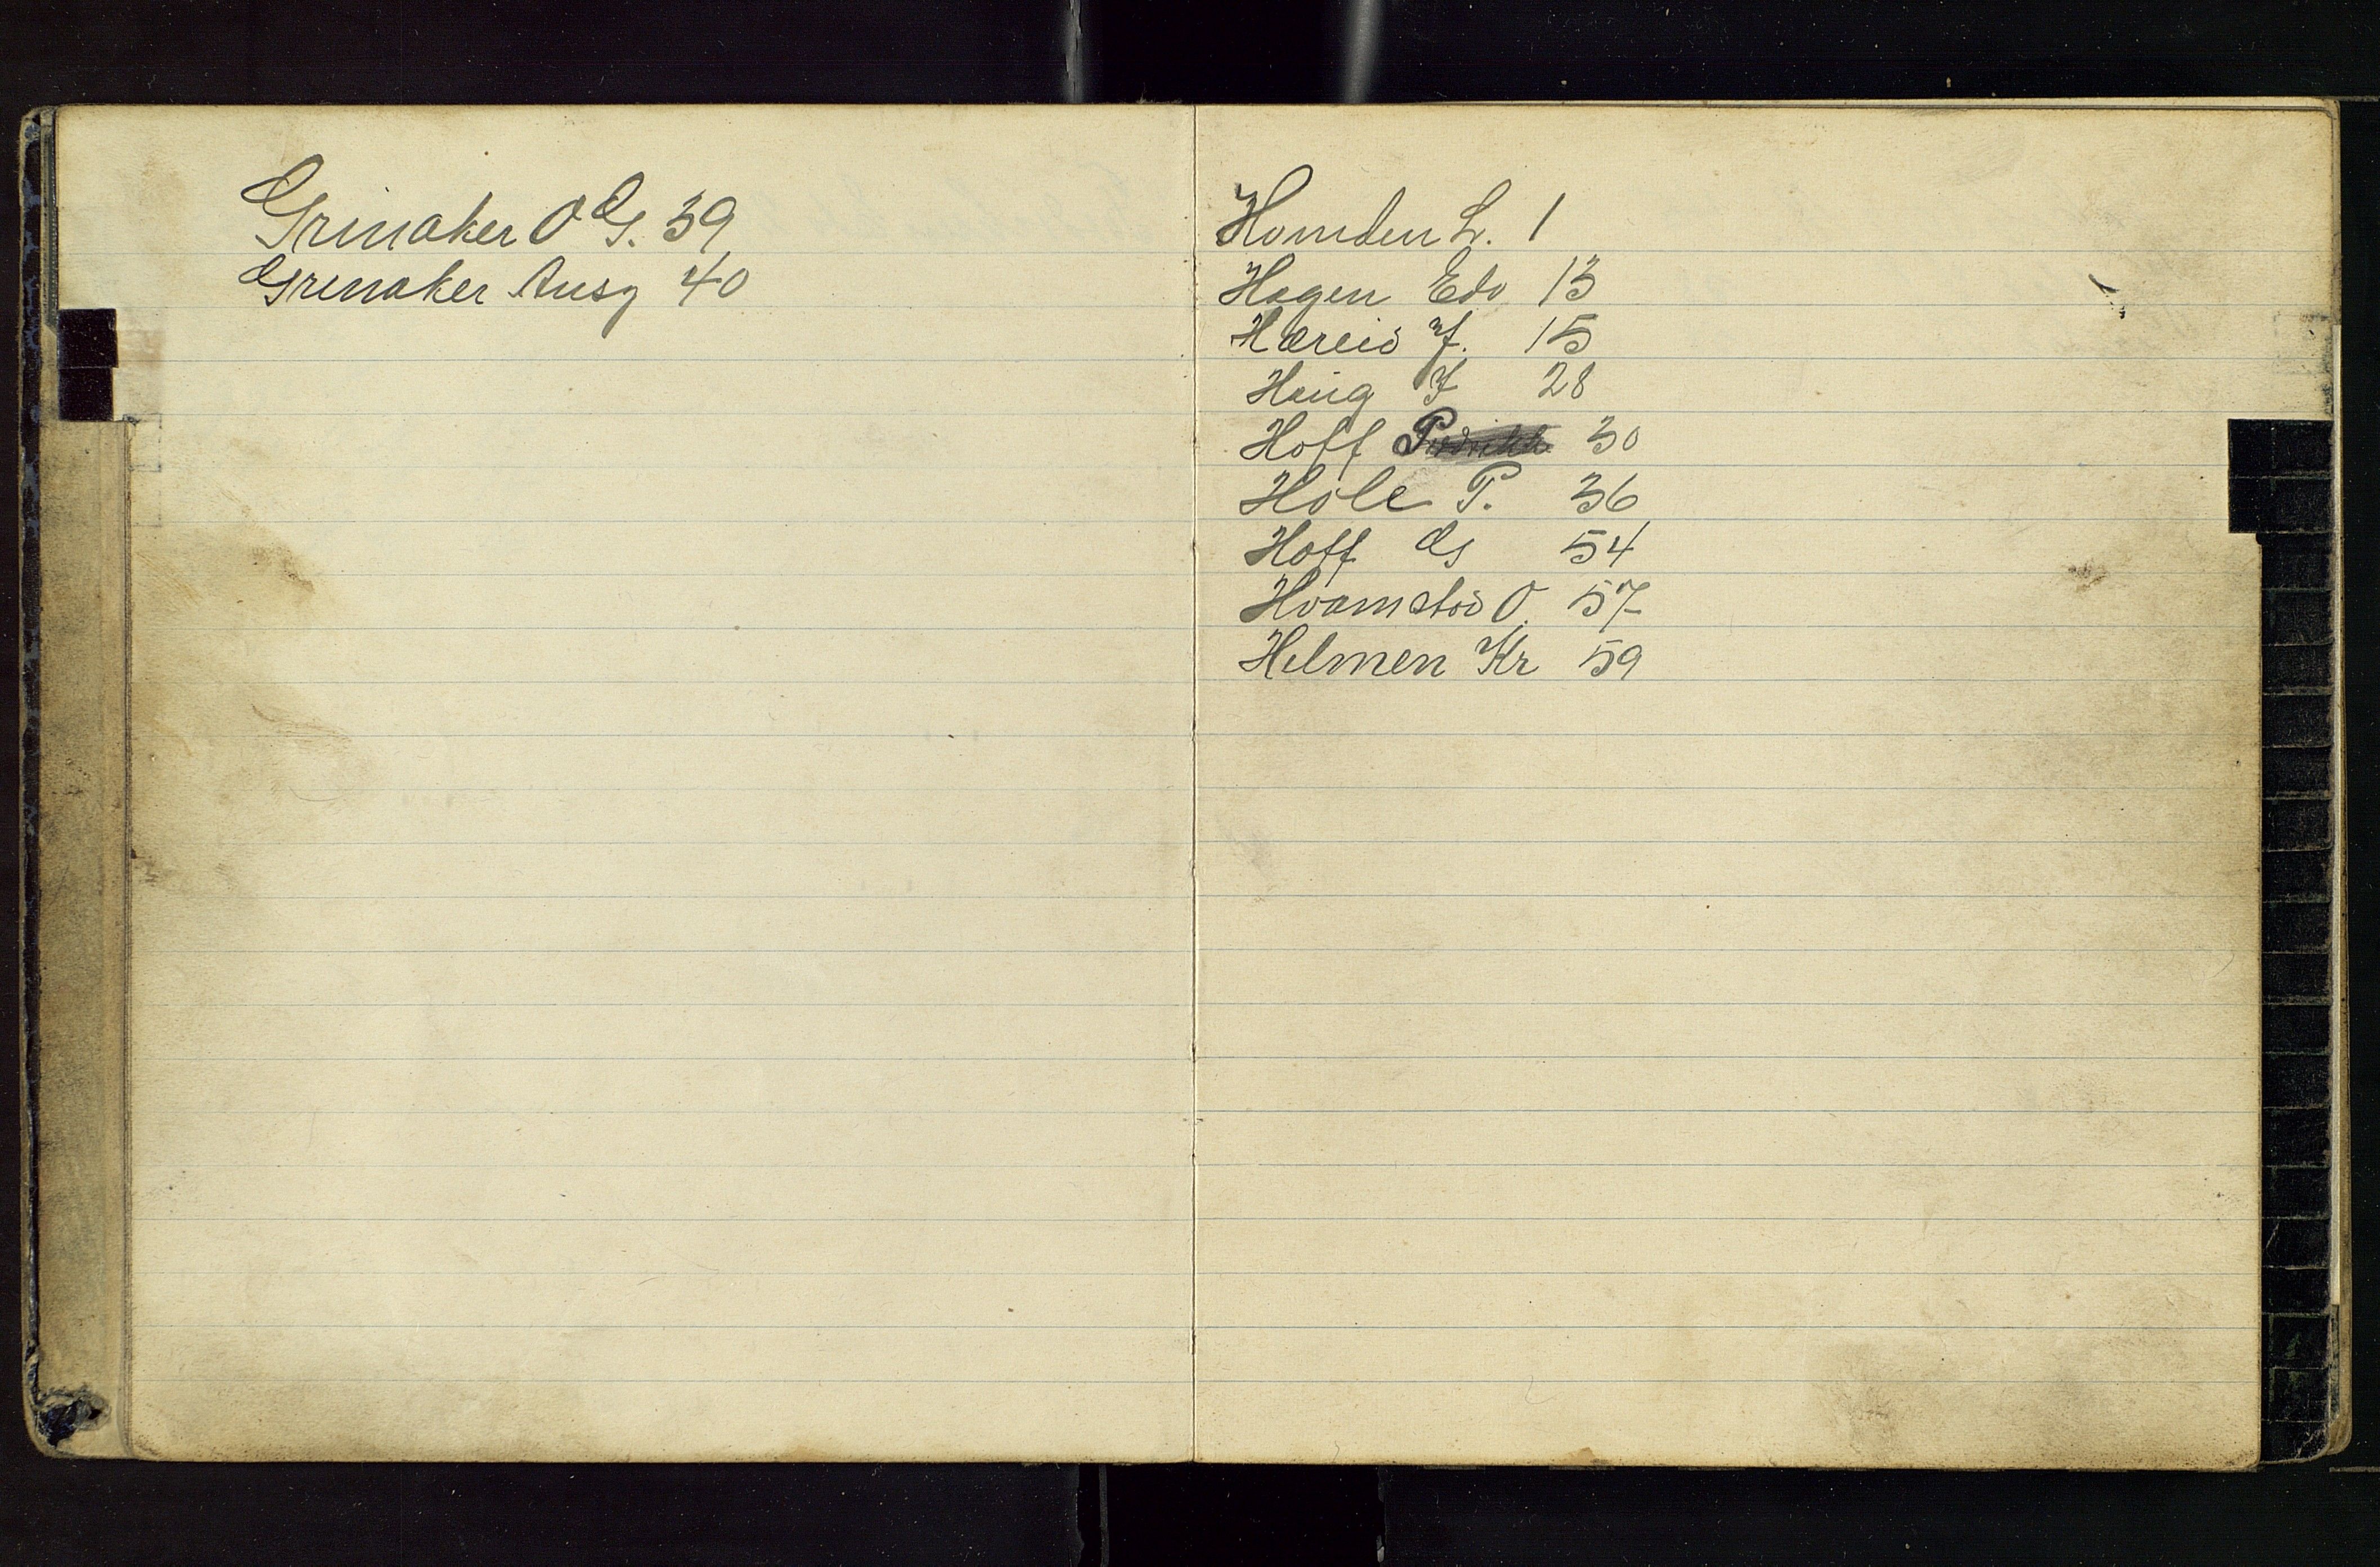 Grinaker O G. 39
Grinaker Ansg 40
Homden L. 1
Hagen Edv 13
Hæreid J. 15
Haug J 28
Hoff P 30
Hole P. 36
Hoff G 54
Hvamstad O. 57
Helmen Kr 59